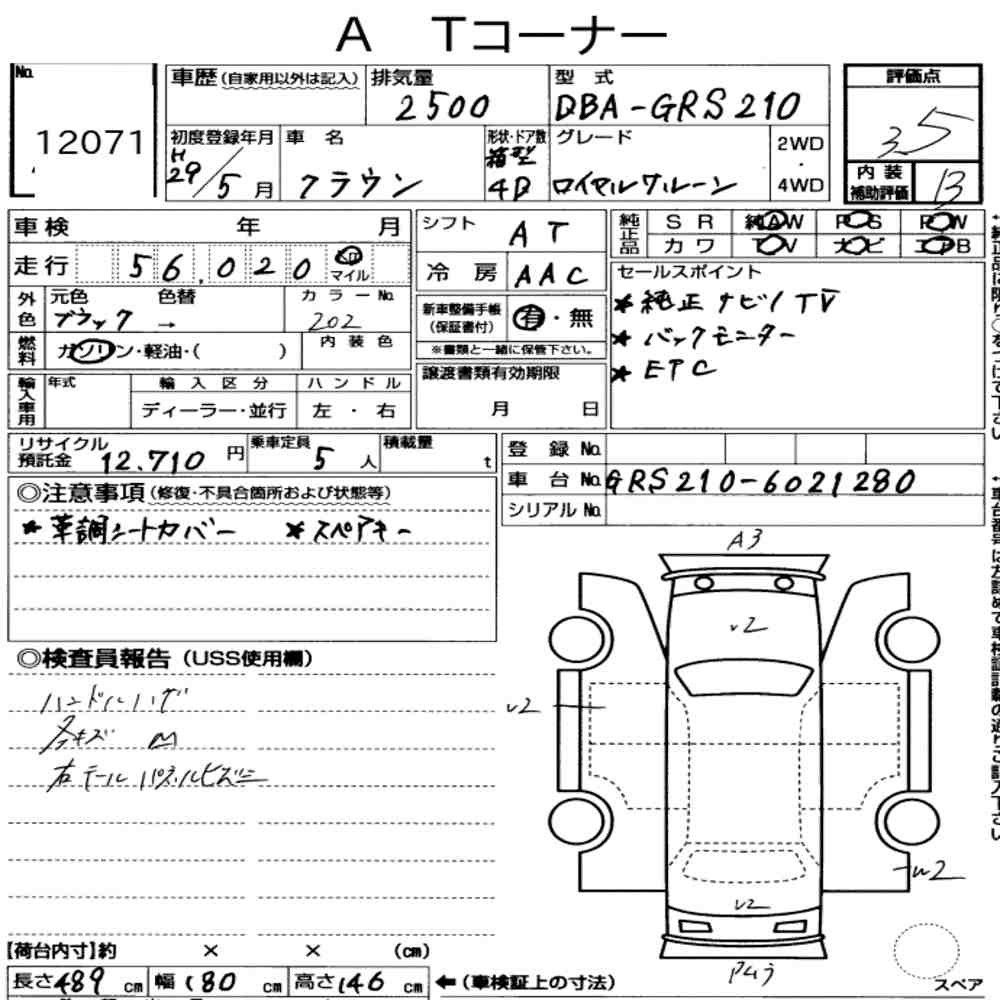 A Tコーナー
No. 12071
車歴(自家用以外は記入)
排気量 2500
型式 DBA-GRS210
評価点 3.5
内装補助評価 B
初度登録年月 H29/5月
車名 クラウン
形状・ドア数 箱型 4D
グレード ロイヤルサルーン
2WD・4WD
車検 年 月
走行 56,020 km マイル
外色 元色 ブラック → 色替 カラーNo. 202
燃料 ガソリン・軽油・( )
内装色
輸入車用 年式
輸入区分 ディーラー・並行
ハンドル 左・右
シフト AT
冷房 AAC
新車整備手帳(保証書付) 有・無
※書類と一緒に保管下さい。
譲渡書類有効期限
月 日
純正品 SR 純AW PS PW
カワ TV ナビ エアB
セールスポイント
* 純正ナビ/TV
* バックモニター
* ETC
リサイクル預託金 12.710円
乗車定員 5人
積載量 t
登録No.
車台No. GRS210-6021280
シリアルNo.
◎注意事項(修復・不具合箇所および状態等)
* 革調シートカバー * スペアキー
◎検査員報告(USS使用欄)
ハンドルハゲ
右テールパネル
A3
v2
v2
w2
v2
【荷台内寸】約 × × (cm)
長さ489cm 幅180cm 高さ146cm
←(車検証上の寸法)
スペア